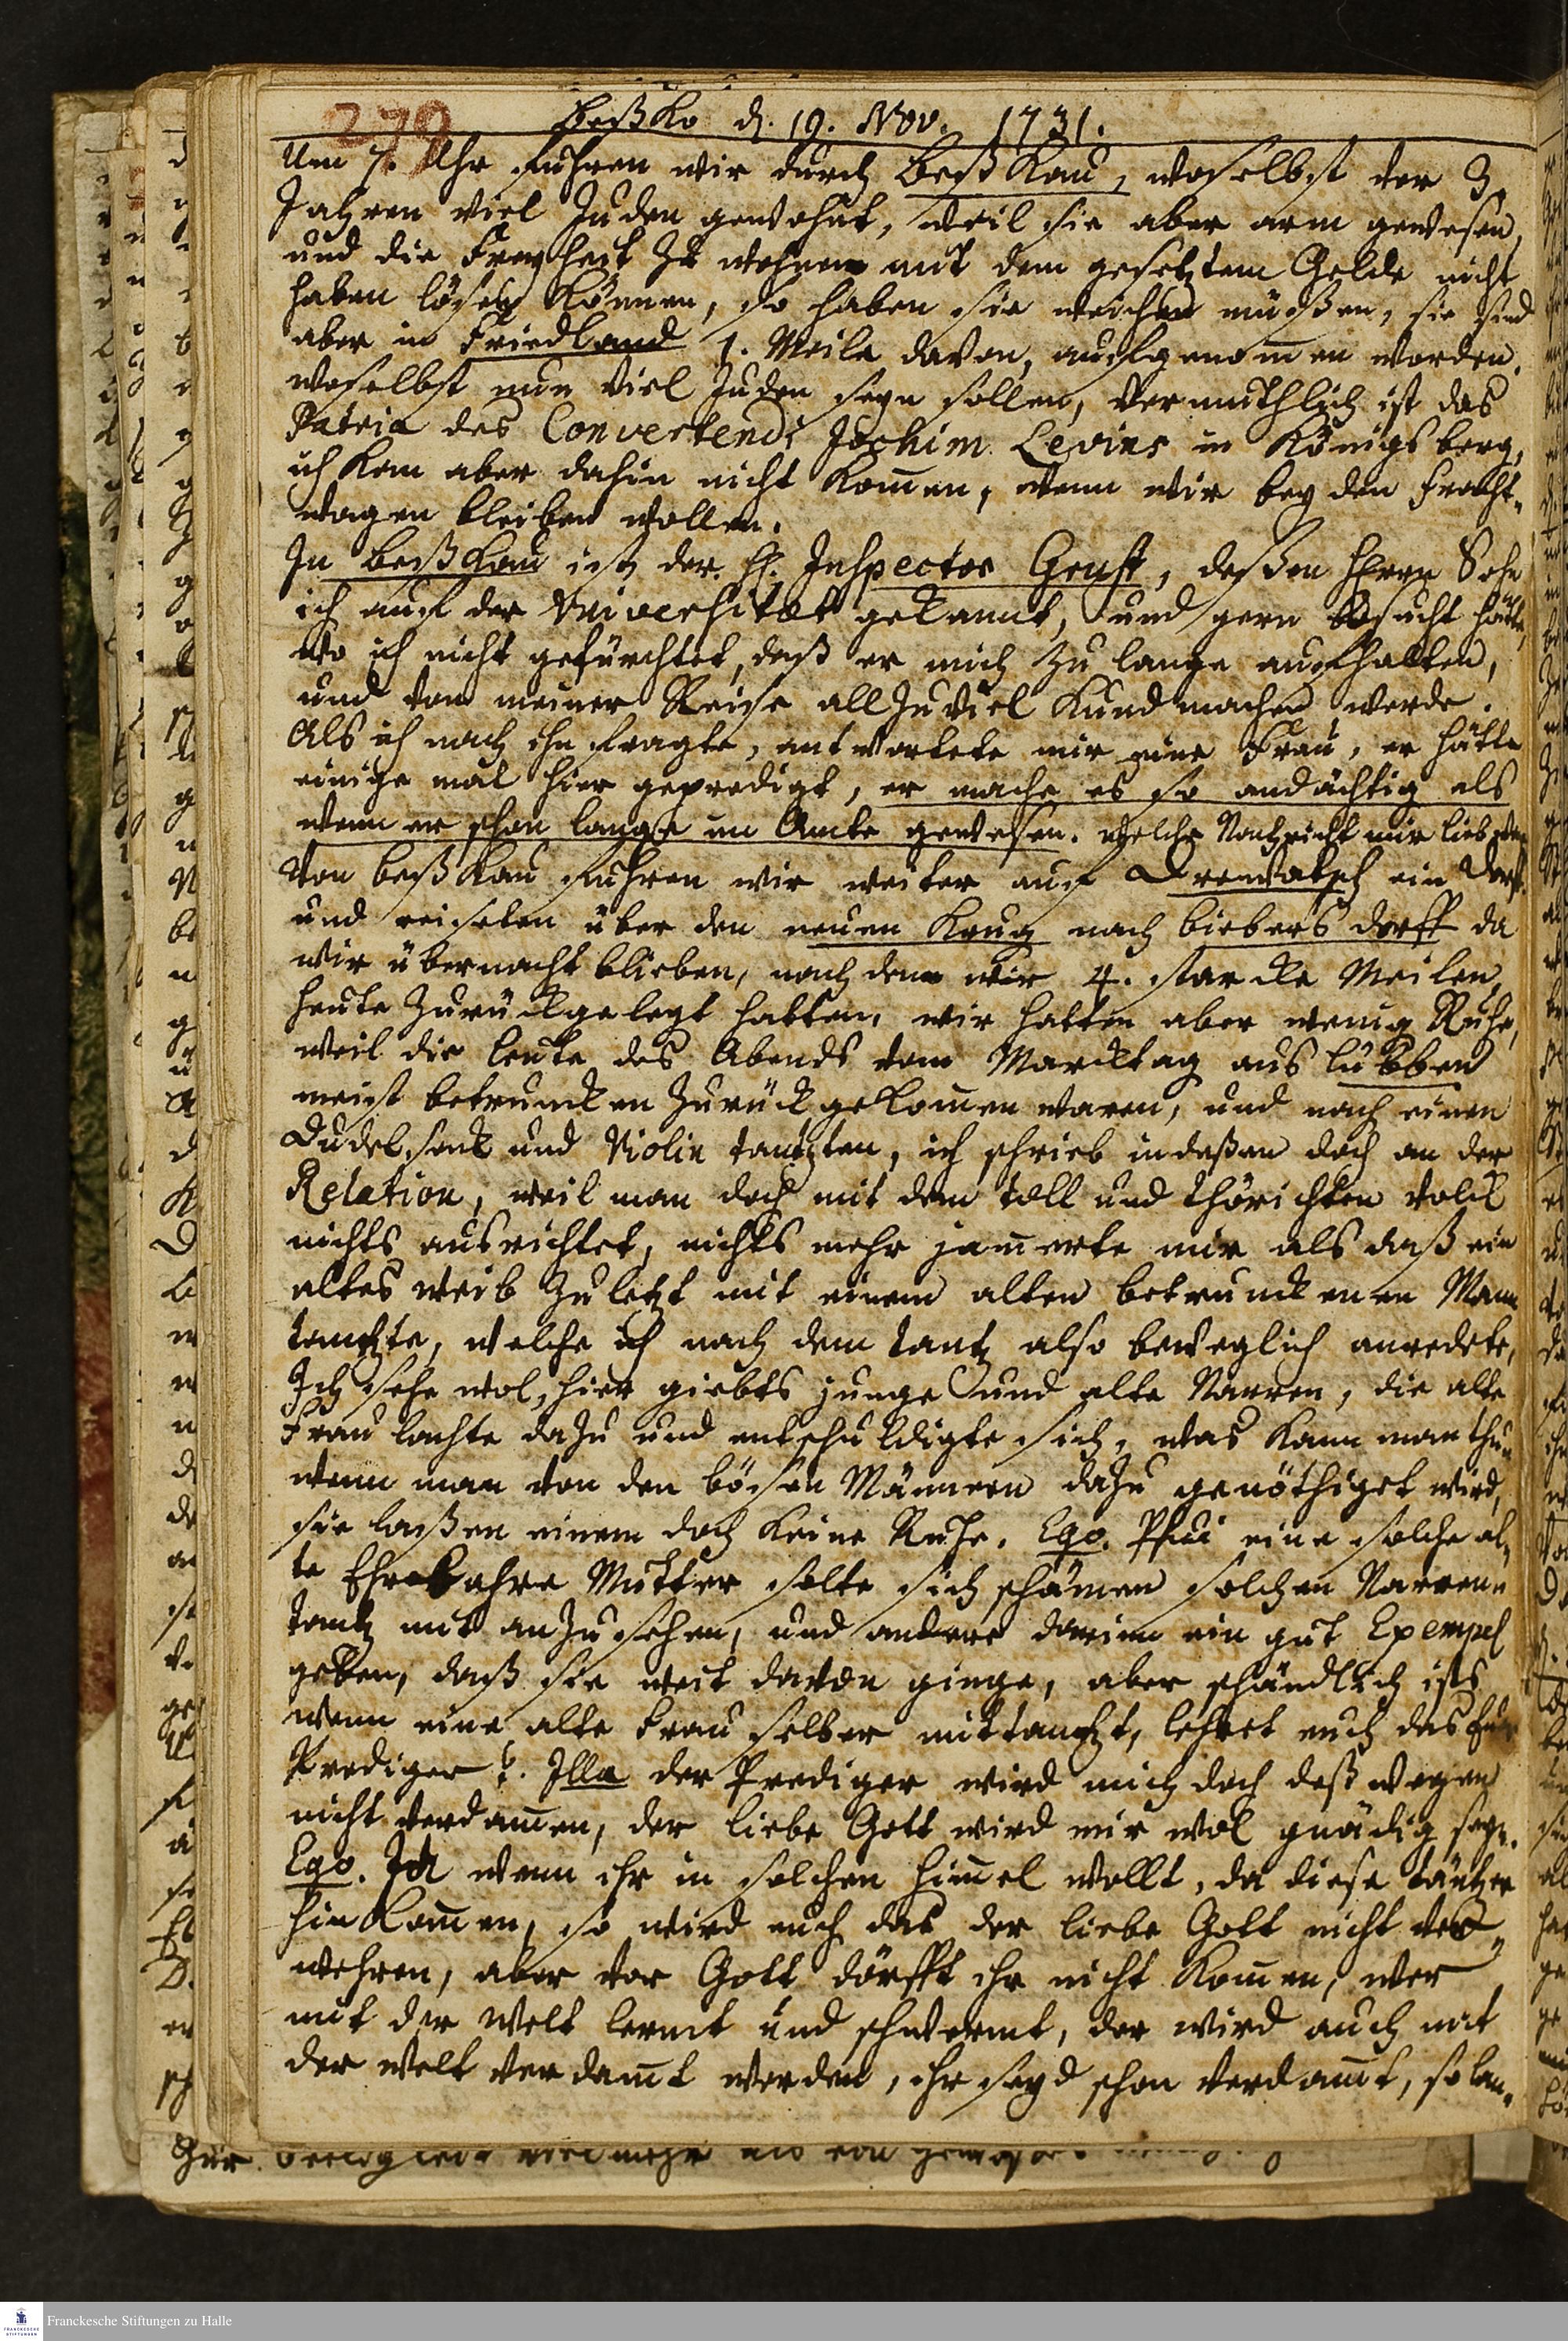 279 Beßko d. 19. Nov. 1731.
Um 7. Uhr fuhren wir durch Beßkau, woselbst vor 3.
Jahren viel Juden gewohnt, weil sie aber arm gewesen,
und die Freyheit zu wohnen mit dem gesetztem Gelde nicht
haben lösen können, so haben sie weichen müßen, sie sind
aber in Friedland 1. Meile davon, aufgenommen worden.
woselbst nun viel Juden seyn sollen, vermuthlich ist das
Patria des Convertendi Jochim Levins in Königsberg,
ich kan aber dahin nicht kommen, wenn wir bey den Fracht-
wagen bleiben wollen.
In Beßkau ist der H. Inspector Genst, deßen Herrn Sohn
ich auf der Universitæt gekannt, und gern besucht hätte,
wo ich nicht gefürchtet, daß er mich zu lange aufhalten,
und von meiner Reise allzuviel kund machen werde.
Als ich nach ihn fragte, antwortete mir eine Frau, er hätte
einige mal hier gepredigt, er mache es so andächtig als
wenn er schon lange im Amte gewesen. welche Nachricht mir lieb war
Von Beßkau fuhren wir weiter auf Drewatsch ein Dorf.
und reiseten über den neuen Krug nach Biebersdorff da
wir übernacht blieben, nach dem wir 4. starcke Meilen
heute zurückgelegt hatten, wir hatten aber wenig Ruhe,
weil die Leute des Abends vom Marcktag aus Lübben
meist betruncken zurück gekommen waren, und nach einen
Dudelsack und Violin tantzten, ich schrieb indeßen doch an der
Relation, weil man doch mit dem toll und thörichten Volck
nichts ausrichtet, nichts mehr jammerte mir als daß ein
altes Weib zuletzt mit einem alten betrunckenen Mann
tantzte, welche ich nach dem Tantz also beweglich anredete,
Ich sehe wol, hier giebts junge und alte Narren, die alte
Frau lachte dazu und entschuldigte sich, was kann man thun
wenn man von den bösen Männern dazu genöthiget wird,
sie laßen einem doch keine Ruhe. Ego. Pfui eine solche al-
te Ehrbahre Mutter solte sich schämen solchen Narren-
tantz mit anzusehen, und andere darinn ein gut Exempel
geben, daß sie weit davon ginge, aber schändlich ists
wenn eine alte Frau selber mittantzt, lehret euch das Eur
Prediger?. Illa der Prediger wird mich doch deßwegen
nicht verdammen, der liebe Gott wird mir wol gnädig seyn.
Ego. Ja wenn ihr in solchen Himmel wollt, da diese Täntzer
hin kommen, so wird euch das der liebe Gott nicht ver-
wehren, aber vor Gott dörfft ihr nicht kommen, wer
mit der Welt lermt und schwermt, der wird auch mit
der Welt verdammt werden, ihr seyd schon verdammt, so lan-
Franckesche Stiftungen zu Halle